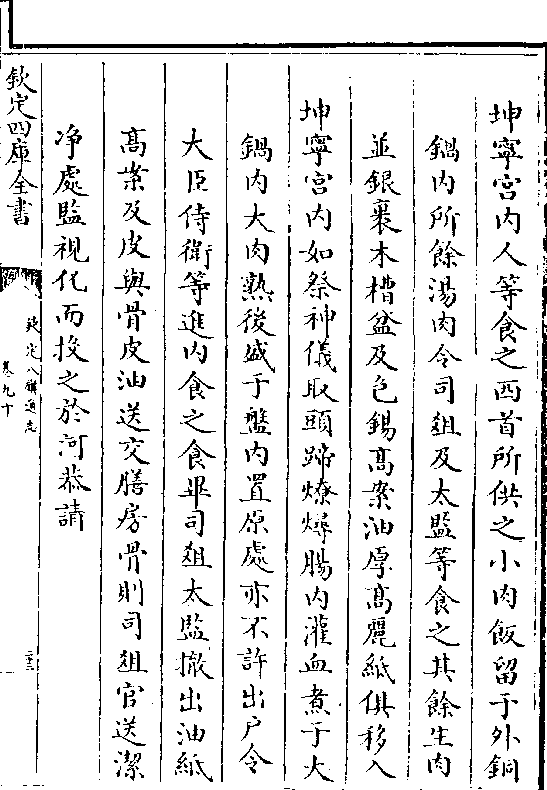 坤寧宮内人等食之西首所供之小肉飯留于外銅
鍋内所餘湯肉令司俎及太監等食之其餘生肉
並銀裹木槽盆及包錫髙案油厚髙麗紙俱移入
坤寧宮内如祭神儀取頭蹄燎燖腸内灌血煮于大
鍋内大肉熟後盛于盤内置原處亦不許出户令
大臣侍衛等進内食之食畢司俎太監撤出油紙
髙案及皮與骨皮油送交膳房骨則司俎官送潔
净處監視化而投之於河恭請
欽定四庫全書
欽定八旗通志
卷九十
三三